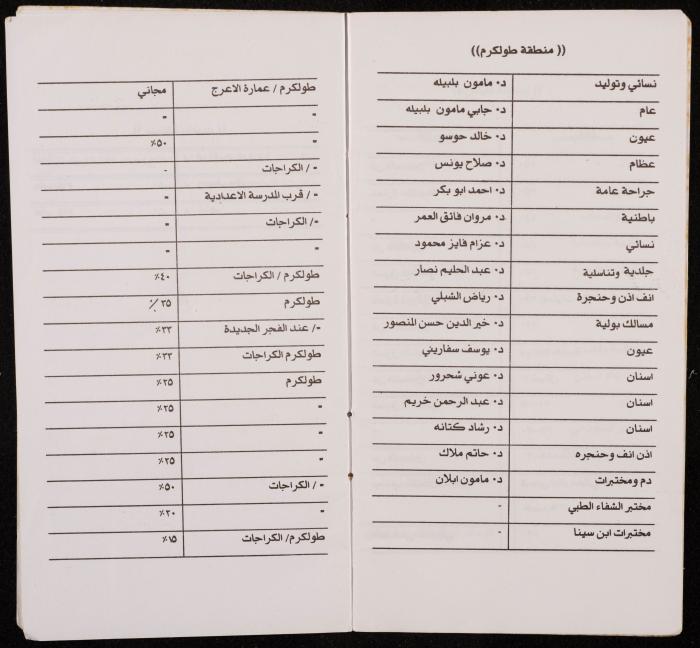 (( منطقة طولكرم))
نسائي وتوليد د. مامون بلبيله
عام د. جابي مامون بلبيله
عيون د. خالد حوسو
عظام د. صلاح يونس
جراحة عامة د. احمد ابو بكر
باطنية د. مروان فائق العمر
نسائي د. عزام فايز محمود
جلدية وتناسلية د. عبد الحليم نصار
انف اذن وحنجرة د. رياض الشبلي
مسالك بولية د. خير الدين حسن المنصور
عيون د. يوسف سفاريني
اسنان د. عوني شحرور
اسنان د. عبد الرحمن خريم
اسنان د. رشاد كتانه
اذن انف وحنجره د. حاتم ملاك
دم ومختبرات د. مامون ابلان
مختبر الشفاء الطبي -
مختبرات ابن سينا -
طولكرم / عمارة الاعرج مجاني
" "
" ٥٠٪
- / الكراجات -
- / قرب المدرسة الاعدادية "
-/ الكراجات "
" "
طولكرم / الكراجات ٤٠٪
طولكرم ٣٥٪
-/ عند الفجر الجديدة ٣٣٪
طولكرم الكراجات ٣٣٪
طولكرم ٢٥٪
" ٢٥٪
" ٢٥٪
" ٢٥٪
- / الكراجات ٥٠٪
" ٢٠٪
طولكرم/ الكراجات ١٥٪